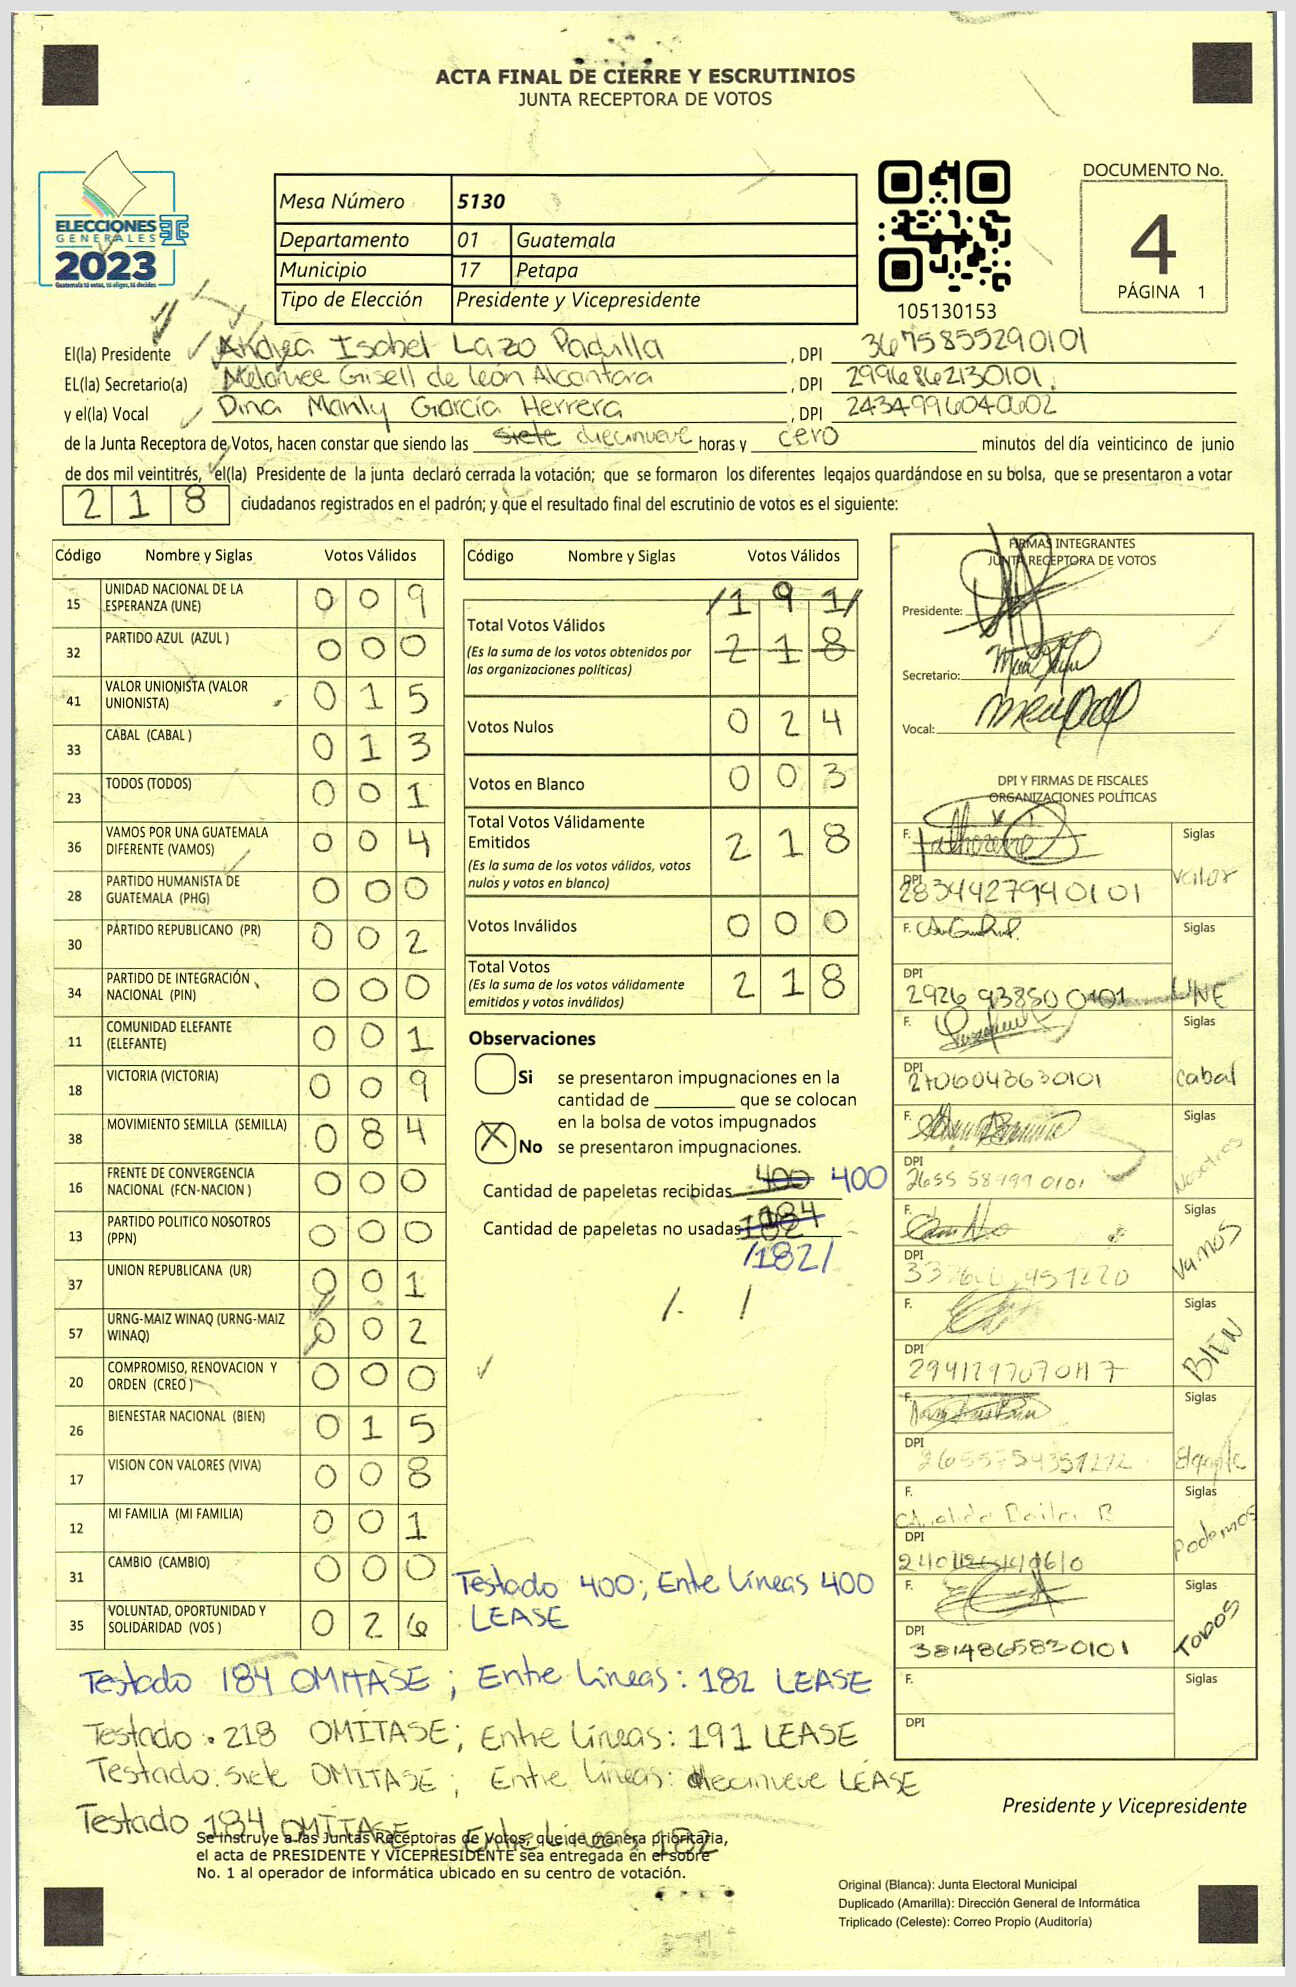 ACTA FINAL DE CIERRE Y ESCRUTINIOS
JUNTA RECEPTORA DE VOTOS
ELECCIONES
GENERALES
2023
Guatemala tú votas, tú eliges, tú decides
Mesa Número 5130
Departamento 01 Guatemala
Municipio 17 Petapa
Tipo de Elección Presidente y Vicepresidente
105130153
DOCUMENTO No.
4
PÁGINA 1
El(la) Presidente Andrea Isabel Lazo Padilla, DPI 3675855290101
EL(la) Secretario(a) Melannee Gisell de león Alcantara, DPI 2996862130101.
y el(la) Vocal Dina Marily García Herrera, DPI 2434996040602
de la Junta Receptora de Votos, hacen constar que siendo las siete diecinueve horas y cero minutos del día veinticinco de junio
de dos mil veintitrés, el(la) Presidente de la junta declaró cerrada la votación; que se formaron los diferentes legajos guardándose en su bolsa, que se presentaron a votar
218 ciudadanos registrados en el padrón; y que el resultado final del escrutinio de votos es el siguiente:
Código Nombre y Siglas Votos Válidos
15 UNIDAD NACIONAL DE LA ESPERANZA (UNE) 009
32 PARTIDO AZUL (AZUL ) 000
41 VALOR UNIONISTA (VALOR UNIONISTA) 015
33 CABAL (CABAL ) 013
23 TODOS (TODOS) 001
36 VAMOS POR UNA GUATEMALA DIFERENTE (VAMOS) 004
28 PARTIDO HUMANISTA DE GUATEMALA (PHG) 000
30 PARTIDO REPUBLICANO (PR) 002
34 PARTIDO DE INTEGRACIÓN NACIONAL (PIN) 000
11 COMUNIDAD ELEFANTE (ELEFANTE) 001
18 VICTORIA (VICTORIA) 009
38 MOVIMIENTO SEMILLA (SEMILLA) 084
16 FRENTE DE CONVERGENCIA NACIONAL (FCN-NACION ) 000
13 PARTIDO POLITICO NOSOTROS (PPN) 000
37 UNION REPUBLICANA (UR) 001
57 URNG-MAIZ WINAQ (URNG-MAIZ WINAQ) 002
20 COMPROMISO, RENOVACION Y ORDEN (CREO ) 000
26 BIENESTAR NACIONAL (BIEN) 015
17 VISION CON VALORES (VIVA) 008
12 MI FAMILIA (MI FAMILIA) 001
31 CAMBIO (CAMBIO) 000
35 VOLUNTAD, OPORTUNIDAD Y SOLIDARIDAD (VOS ) 026
Código Nombre y Siglas Votos Válidos
/191/
Total Votos Válidos 218
(Es la suma de los votos obtenidos por
las organizaciones políticas)
Votos Nulos 024
Votos en Blanco 003
Total Votos Válidamente
Emitidos 218
(Es la suma de los votos válidos, votos
nulos y votos en blanco)
Votos Inválidos 000
Total Votos 218
(Es la suma de los votos válidamente
emitidos y votos inválidos)
Observaciones
Si se presentaron impugnaciones en la
cantidad de ________ que se colocan
en la bolsa de votos impugnados
X No se presentaron impugnaciones.
Cantidad de papeletas recibidas 400 400
Cantidad de papeletas no usadas 184
/182/
FIRMAS INTEGRANTES
JUNTA RECEPTORA DE VOTOS
Presidente:
Secretario:
Vocal:
DPI Y FIRMAS DE FISCALES
ORGANIZACIONES POLÍTICAS
F. Siglas
DPI 2834427940101 valor
F. Siglas
DPI 2926 93850 0101 UNE
F. Siglas
DPI 2706043630101 Cabal
F. Siglas
DPI Nosotros
F. Siglas
DPI Vamos
F. Siglas
DPI BIEN
F. Siglas
DPI 2655754351212
F. Siglas
DPI Podemos
F. Siglas
DPI 3814865820101 TODOS
F. Siglas
DPI
Testado 400; Entre líneas 400
LEASE
Testado 184 OMITASE; Entre Lineas: 182 LEASE
Testado. 218 OMITASE; Entre líneas: 191 LEASE
Testado. siete OMITASE; Entre líneas: diecinueve LEASE
Testado 184 OMITASE Entre Lineas 182
Se instruye a las Juntas Receptoras de Votos, que de manera prioritaria,
el acta de PRESIDENTE Y VICEPRESIDENTE sea entregada en el sobre
No. 1 al operador de informática ubicado en su centro de votación.
Presidente y Vicepresidente
Original (Blanca): Junta Electoral Municipal
Duplicado (Amarilla): Dirección General de Informática
Triplicado (Celeste): Correo Propio (Auditoría)